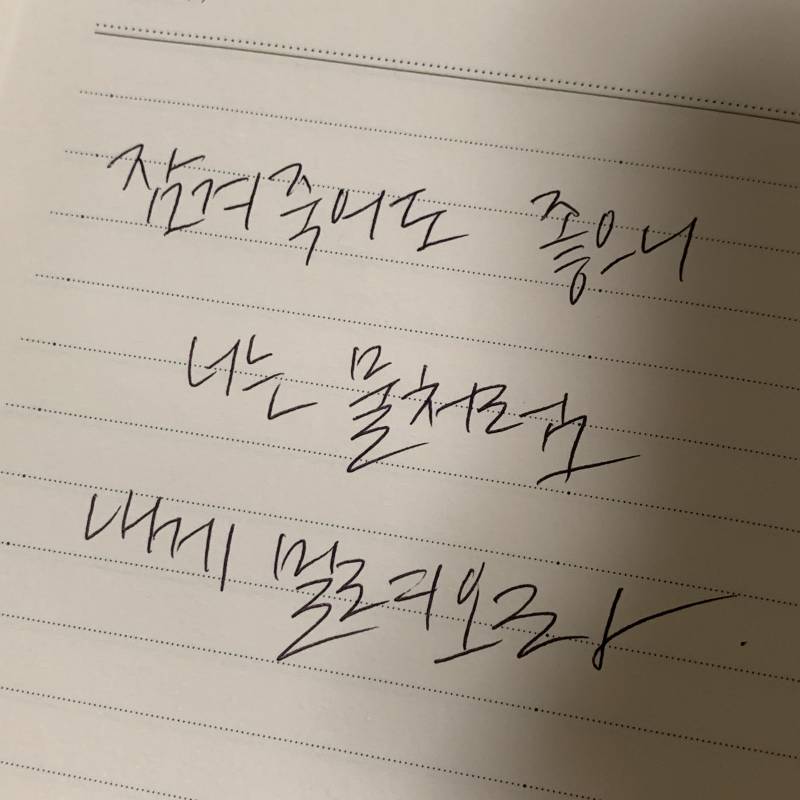 잠겨죽어도 좋으니
너는 물처럼
내게 밀려오라.